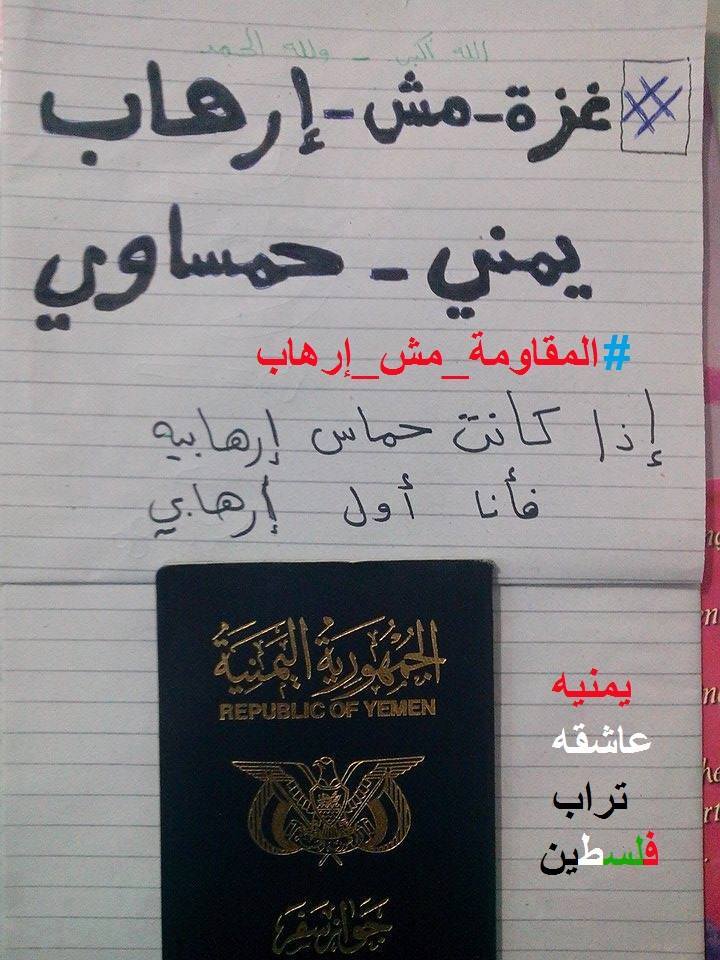 الله أكبر - ولله الحمد
# غزة-مش-إرهاب
يمني - حمساوي
#المقاومة_مش_إرهاب
إذا كانت حماس إرهابيه
فأنا أول إرهابي
الجمهورية اليمنية
REPUBLIC OF YEMEN
جواز سفر
يمنيه
عاشقه
تراب
فلسطين